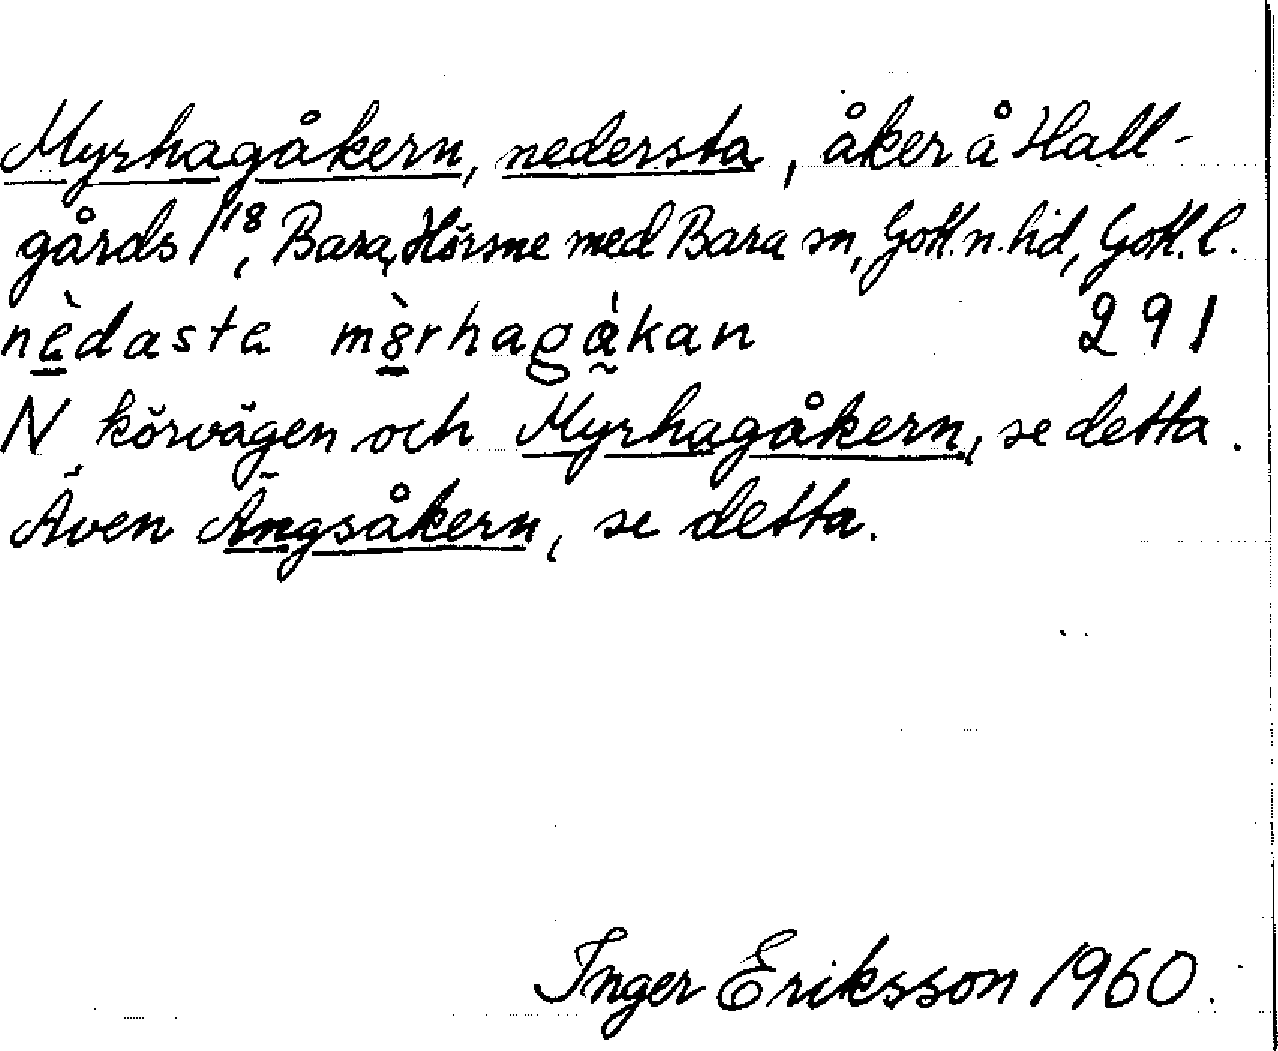 Myrhagåkern, nedersta, åker å Hall-
gårds 1¹⁸, Bara, Hörsne med Bara sn, Gotl. n. hd, Gotl. l.
nèdasta mỳrhagákan 291
N körvägen och Myrhagåkern, se detta.
Även Ängsåkern, se detta.
Inger Eriksson 1960.